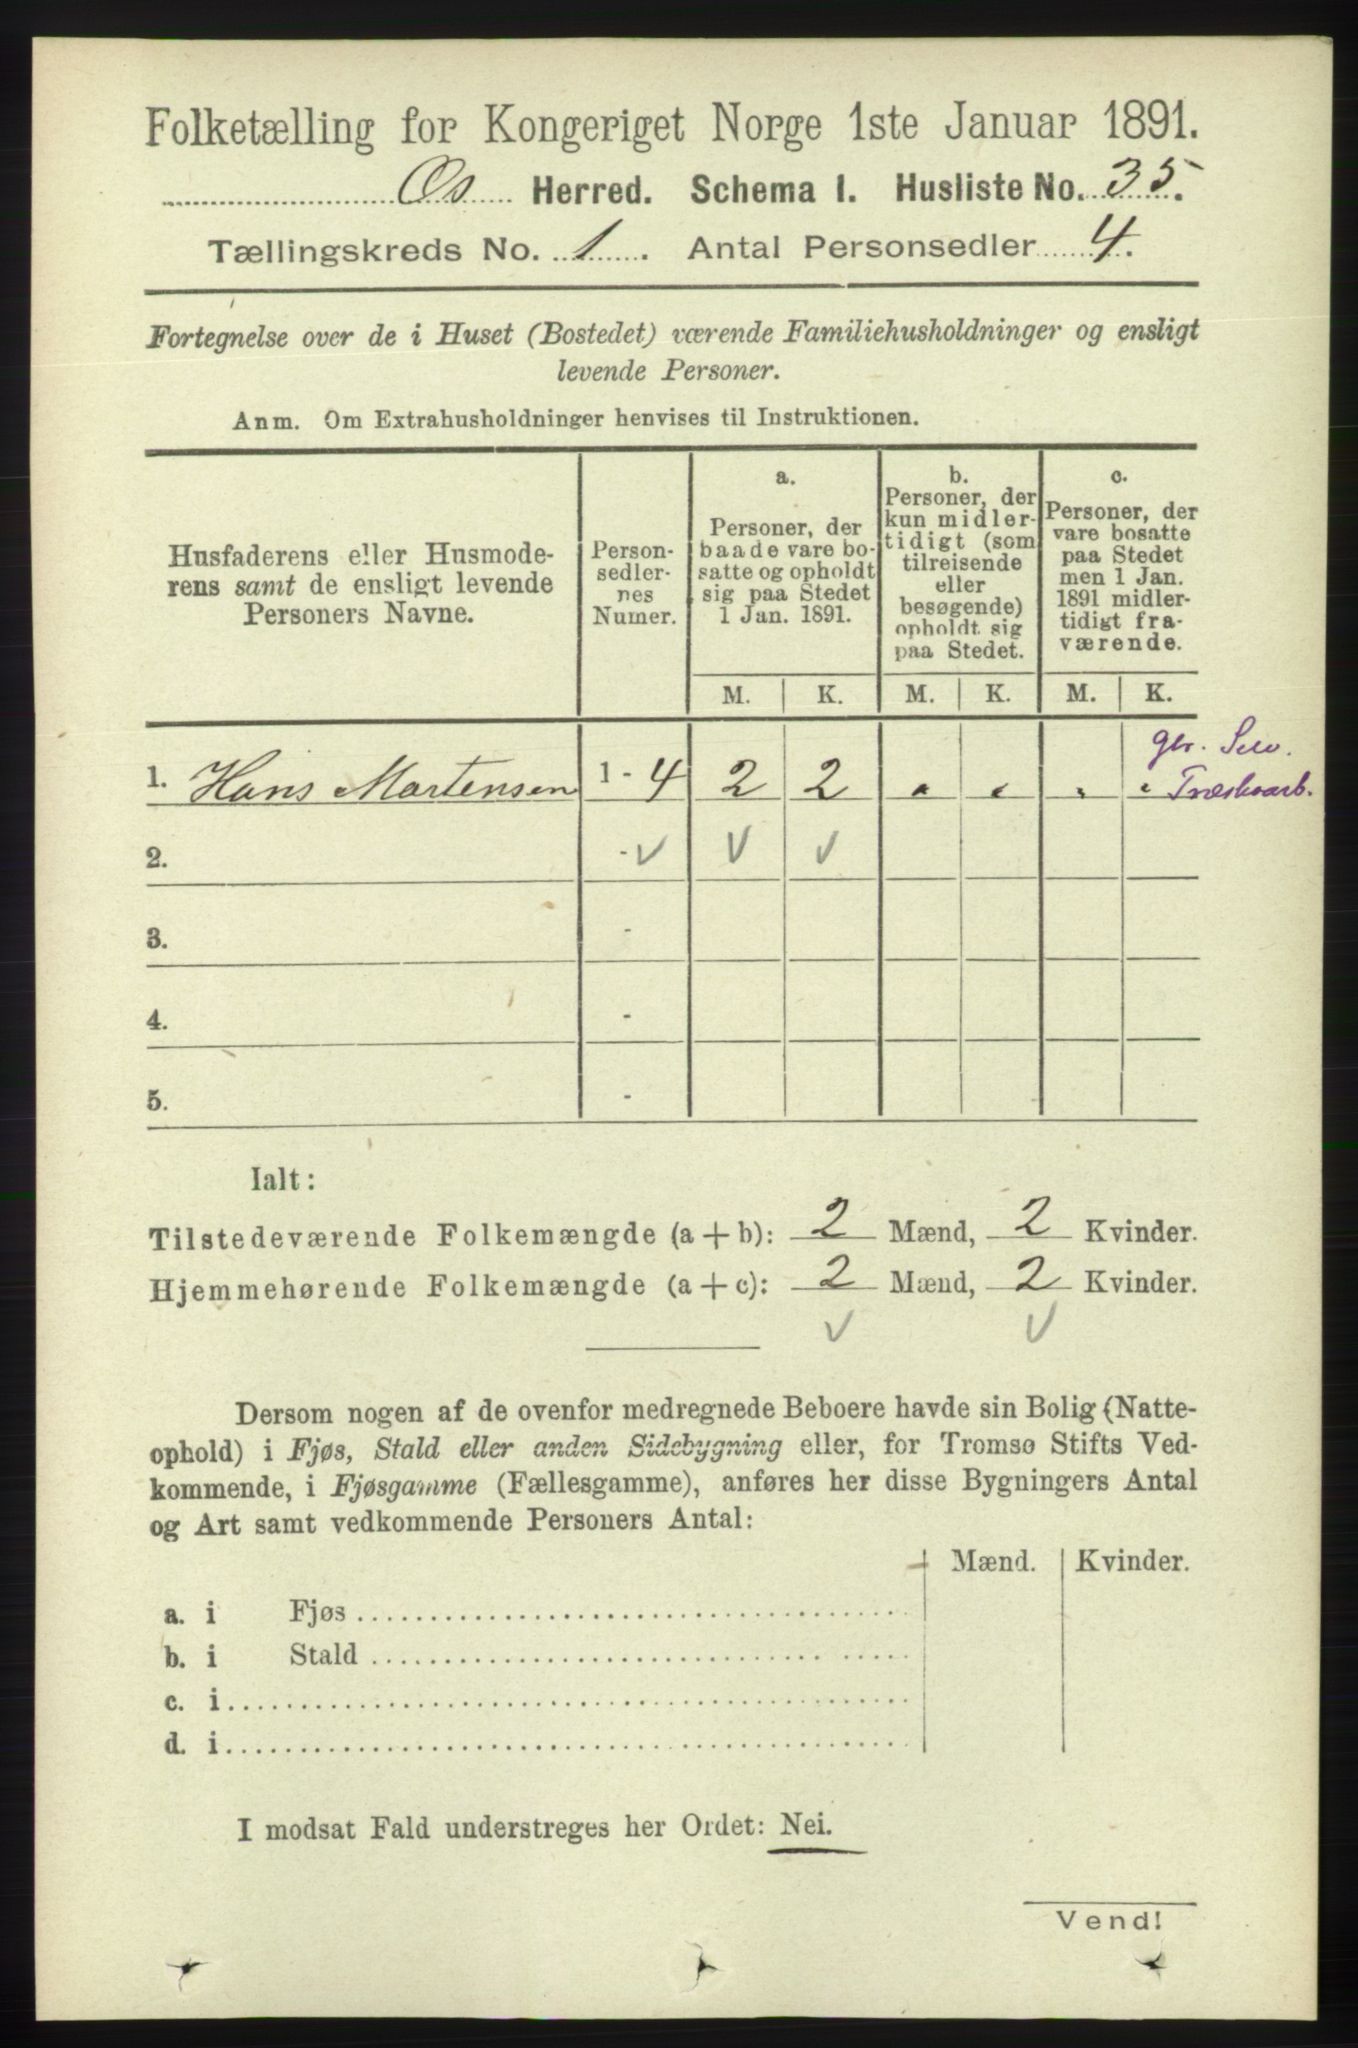 Folketælling for Kongeriget Norge 1ste Januar 1891.
Os Herred. Schema I. Husliste No. 35.
Tællingskreds No. 1. Antal Personsedler 4.
Fortegnelse over de i Huset (Bostedet) værende Familiehusholdninger og ensligt
levende Personer.
Anm. Om Extrahusholdninger henvises til Instruktionen.
Husfaderens eller Husmode-
rens samt de ensligt levende
Personers Navne.
Person-
sedler-
nes
Numer.
a.
Personer, der
baade vare bo-
satte og opholdt
sig paa Stedet
1 Jan. 1891.
b.
Personer, der
kun midler-
tidigt (som
tilreisende
eller
besøgende)
opholdt sig
paa Stedet.
c.
Personer, der
vare bosatte
paa Stedet
men 1 Jan.
1891 midler-
tidigt fra-
værende.
M. K. M. K. M. K.
1. Hans Martensen 1 - 4 2 2 " " " "
2. - ✓ ✓ ✓
3. -
4. -
5. -
Ialt:
Tilstedeværende Folkemængde (a + b): 2 Mænd, 2 Kvinder.
Hjemmehørende Folkemængde (a + c): 2 Mænd, 2 Kvinder.
✓ ✓
Dersom nogen af de ovenfor medregnede Beboere havde sin Bolig (Natte-
ophold) i Fjøs, Stald eller anden Sidebygning eller, for Tromsø Stifts Ved-
kommende, i Fjøsgamme (Fællesgamme), anføres her disse Bygningers Antal
og Art samt vedkommende Personers Antal:
Mænd. Kvinder.
a. i Fjøs
b. i Stald
c. i
d. i
I modsat Fald understreges her Ordet: Nei.
Vend!